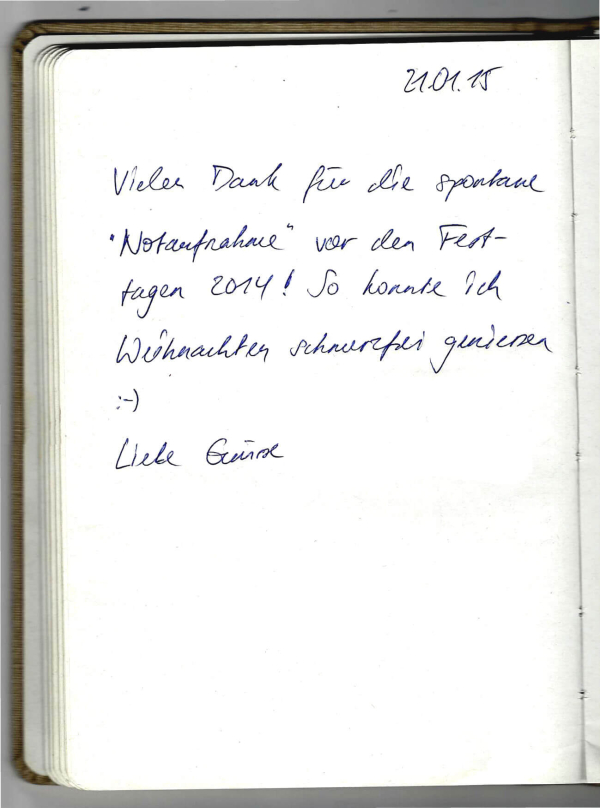 21.01.15
Vielen Dank für die spontane
"Notaufnahme" vor den Fest-
tagen 2014! So konnte ich
Weihnachten schmerzfrei geniessen
:-)
Liebe Grüsse